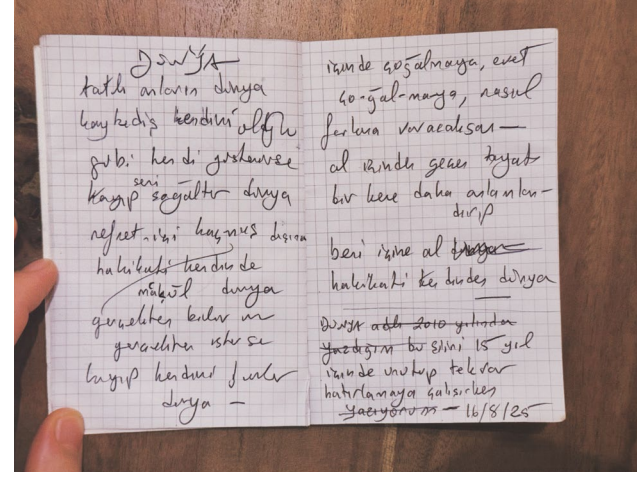 DÜNYA
tatlı anların dünya
kaybediş kendini olduğu
gibi kendi gösterirse
kayıp seni çoğaltır dünya
nefret-içi kaçmış dışına
hakikati kendinde
makûl dünya
gerçekten
gerçekten isterse
kayıp kendini
dünya —
içinde çoğalmaya, evet
ço-ğal-maya, nasıl
farkına varacaksan —
al içinden geçen hayatı
bir kere daha anlamlan-
dırıp
beni içine al
hakikati kendinden dünya
DÜNYA adlı 2010 yılında
yazdığım bu şiiri 15 yıl
içinde unutup tekrar
hatırlamaya çalışırken
yazıyorum — 16/8/25